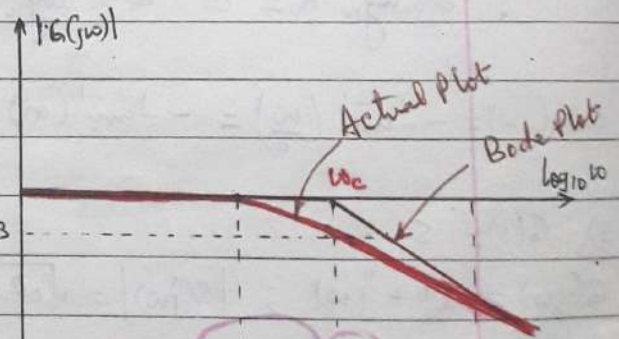 |G(jω)|
Actual Plot
Bode Plot
ωc
log10 ω
3